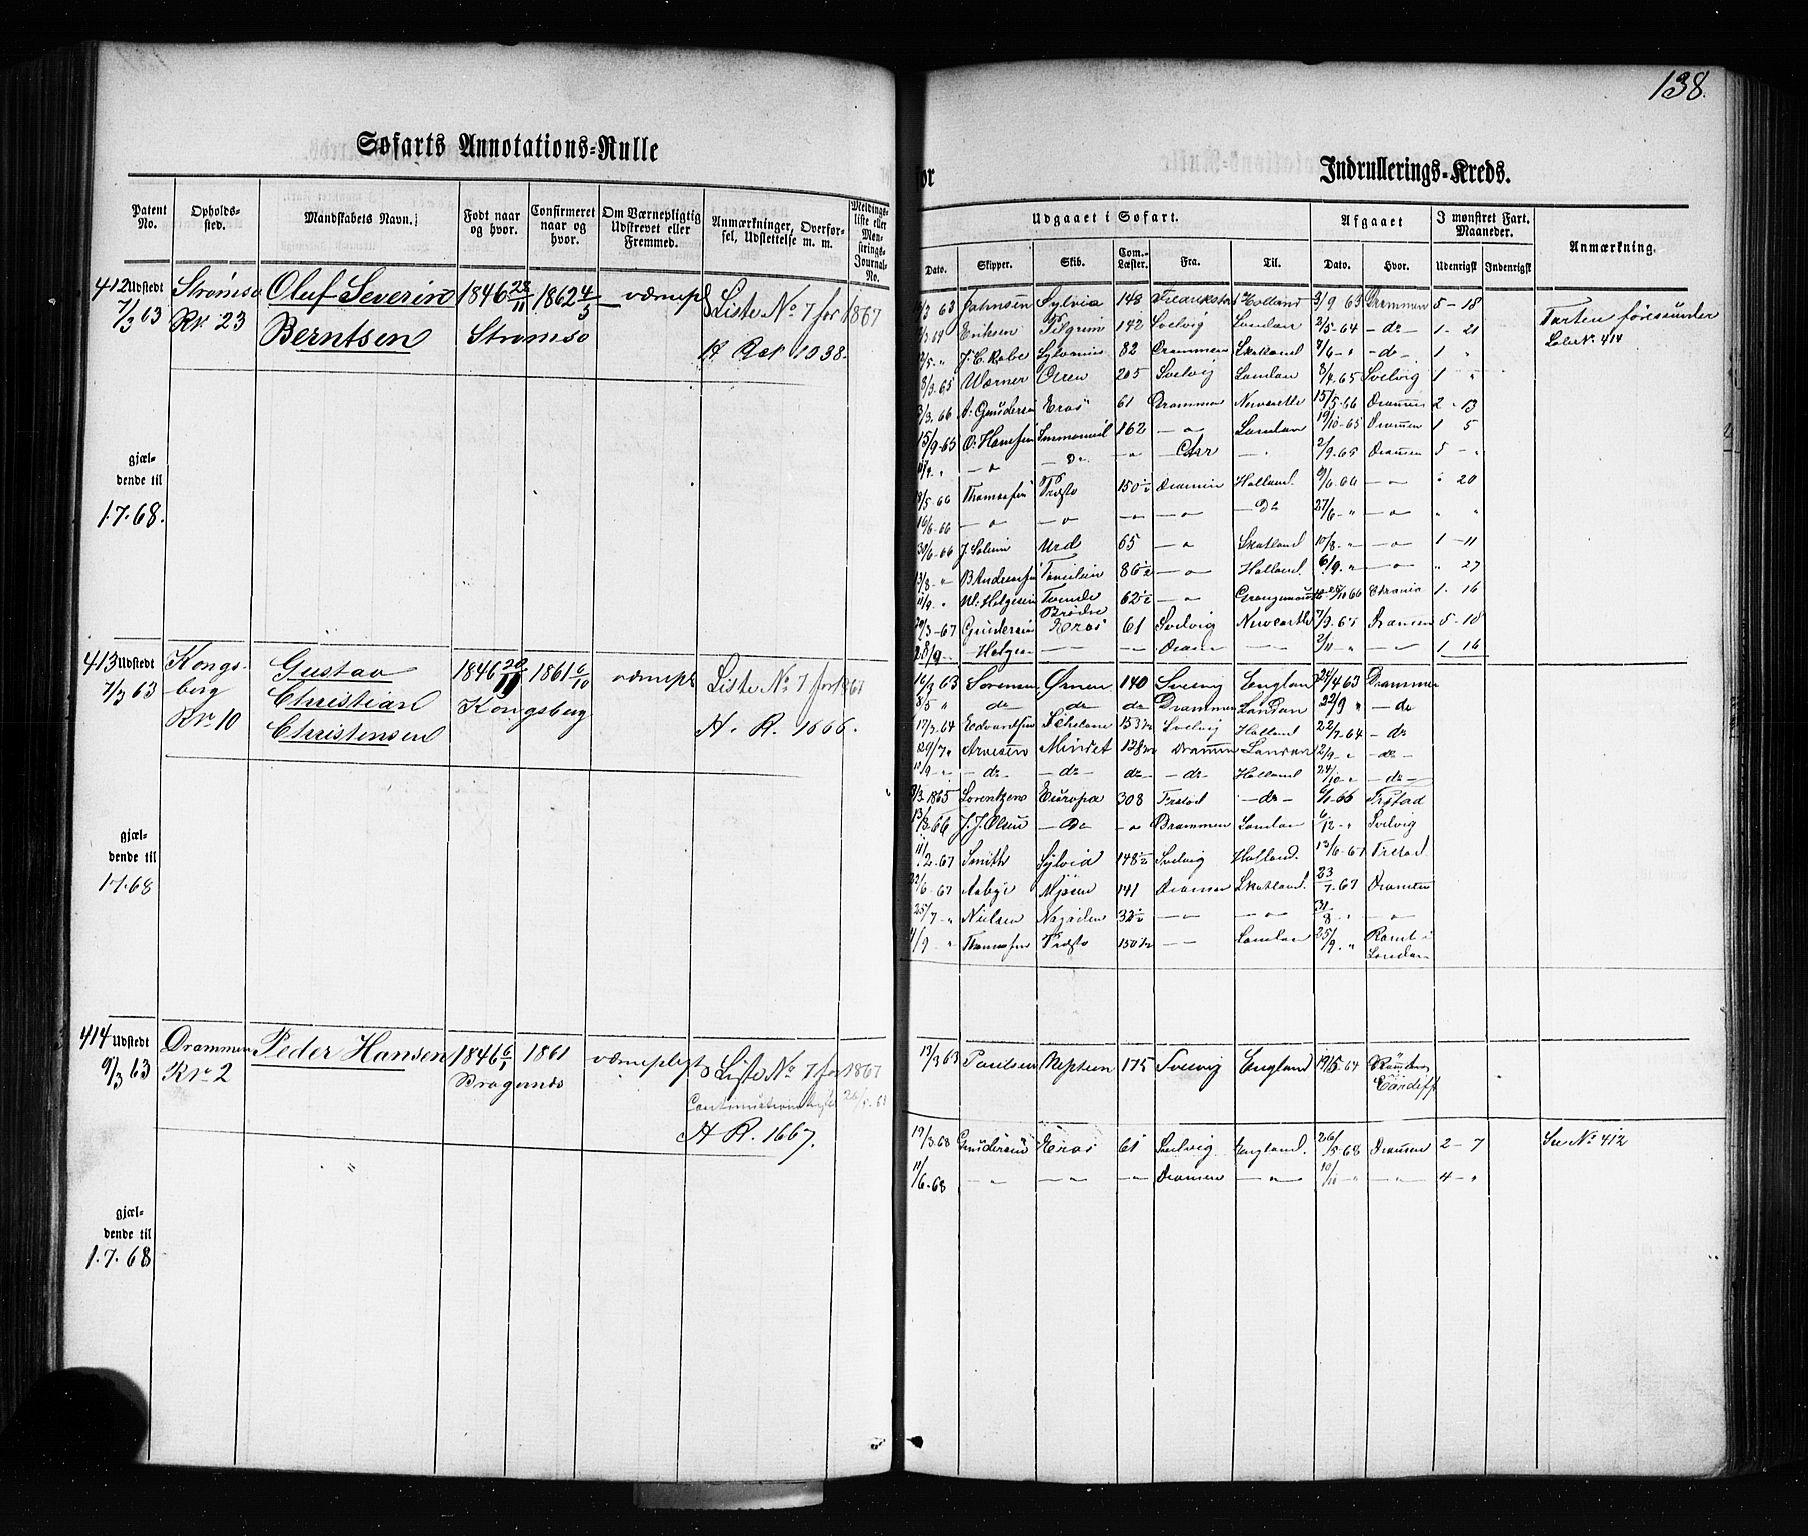 138.
Søfarts Annotations-Rulle
for Indrullerings-Kreds.
Patent No. Opholds-sted. Mandskabets Navn. Født naar og hvor. Confirmeret naar og hvor. Om Værnepligtig Udskrevet eller Fremmed. Anmærkninger, Overførsel, Udslettelse m. m. Meldingsliste eller Mønstrings Journal No.
Udgaaet i Søfart. Afgaaet I mønstret Fart. Maaneder. Anmærkning.
Dato. Skipper. Skib. Com.-Læster. Fra. Til. Dato. Hvor. Udenrigst Indenrigst
412 Udstedt 7/3 63 Strømsø No 23 Oluf Severin Berntsen 1846 28/11 Strømsø 1862 4/5 værnepl Liste No 7 for 1867
A Rek 1038.
gjæl-
dende til
1.7.68.
3 63 Jahnsen Sylvia 148 Fredrikstad Holland 3/9 63 Drammen 5 - 18 Farten føres under Løbe No. 414
Eriksen Pilgrim 142 Svelvig London 2/5-64 - do - 1 - 21
J. C. Rabe Sylvanus 82 Drammen Skotland 7/6 - " - do - 1 "
8/3.65 Warner Oren 205 Svelvig London 8/4.65 Svelvig 1 "
3/3.66 A. Gundersen Eros 61 Drammen Newcastle 15/5-66 Drammen 2 - 13
15/9-65 O. Hansen Immanuel 162 - " - London 19/10-65 Drammen 1 5
- " - - Do - - " - Chr - " - 2/9-65 Drammen 5 - "
8/5-66 Thomassen Præsto 150 1/2 Drammen Holland 9/6 66 - " - " 20
16/6-66 - " - - " - - " - - " - - Do 27/6 - " - " - " "
30/6-66 J. Solum Urd 65 - " - Skotland 17/8 - " - " - 1 - 11
13/8 - " B Andreasen 86 1/2 - " - Holland. 6/9 - " - " - " 27
11/9 - " M. Helgesen Tvende Brødre 62 1/2 - " - Grangemouth 10 66 Chrania 1 - 16
29/3-67 Gundersen Eros 61 Svelvig Newcastle 7/9-67 Drammen 5 - 18
28/9 - Helgesen - - - Dramm - " - 2/11 - " - " - 1 16
413 Udstedt 7/3 63 Kongsberg No 10 Gustav Christian Christensen 1846 20/11 Kongsberg 1861 6/10 værnepl Liste No 7 for 1867
A. R. 1666.
gjæl-
dende til
1.7.68
16/3 63 Sorensen Ørnen 140 Svelvig England 24/4 63 Drammen
8/5 " do do do Drammen London 22/9 " - do
17/3-64 Edvardsen 153 1/2 Svelvig Holland 22/7-64 - do
29/7 " Arvesen Mindet 128 1/2 Drammen London 12/9 - " - do
11/9 - " - do - - do - do - do - Holland 24/10 - " - do -
8/3 1865 Lorentzen Europa 308 Frstad - do - 6/1-66 Frstad
13/3-66 J. J. Olsen - Do - " Drammen London 6/12 - " Svelvig
11/2-67 Smith Sylvia 148 1/2 Svelvig Holland. 13/6-67 Frstad
22/6-67 Aabye Mjøsen 141 Drammen Skotland. 23/7-67 Drammen
25/7 - " Nielsen Najaden 32 1/2 - " - - " - 31/8 - " - " -
4/9 - " Thomassen Præsto 150 1/2 - - London 25/9 - " Rømt i London
414 Udstedt 9/3 63 Drammen No 2 Peder Hansen 1846 6/1 Bragernæs 1861 værnepligt Liste No 7 for 1867
Continuationsliste 26/5-68
A R. 1667.
gjæl-
dende til
1.7.68
13/3 63 Paulsen Neptun 175 Svelvig England 19/5-64 Rømt Cardiff
19/3-68 Gundersen Eros 61 Svelvig England. 26/5-68 Drammen 2 - 7 Se No. 412
11/6-68 - " - - " - - " - Drammen - " - 10/10 - " - " - 4 - "